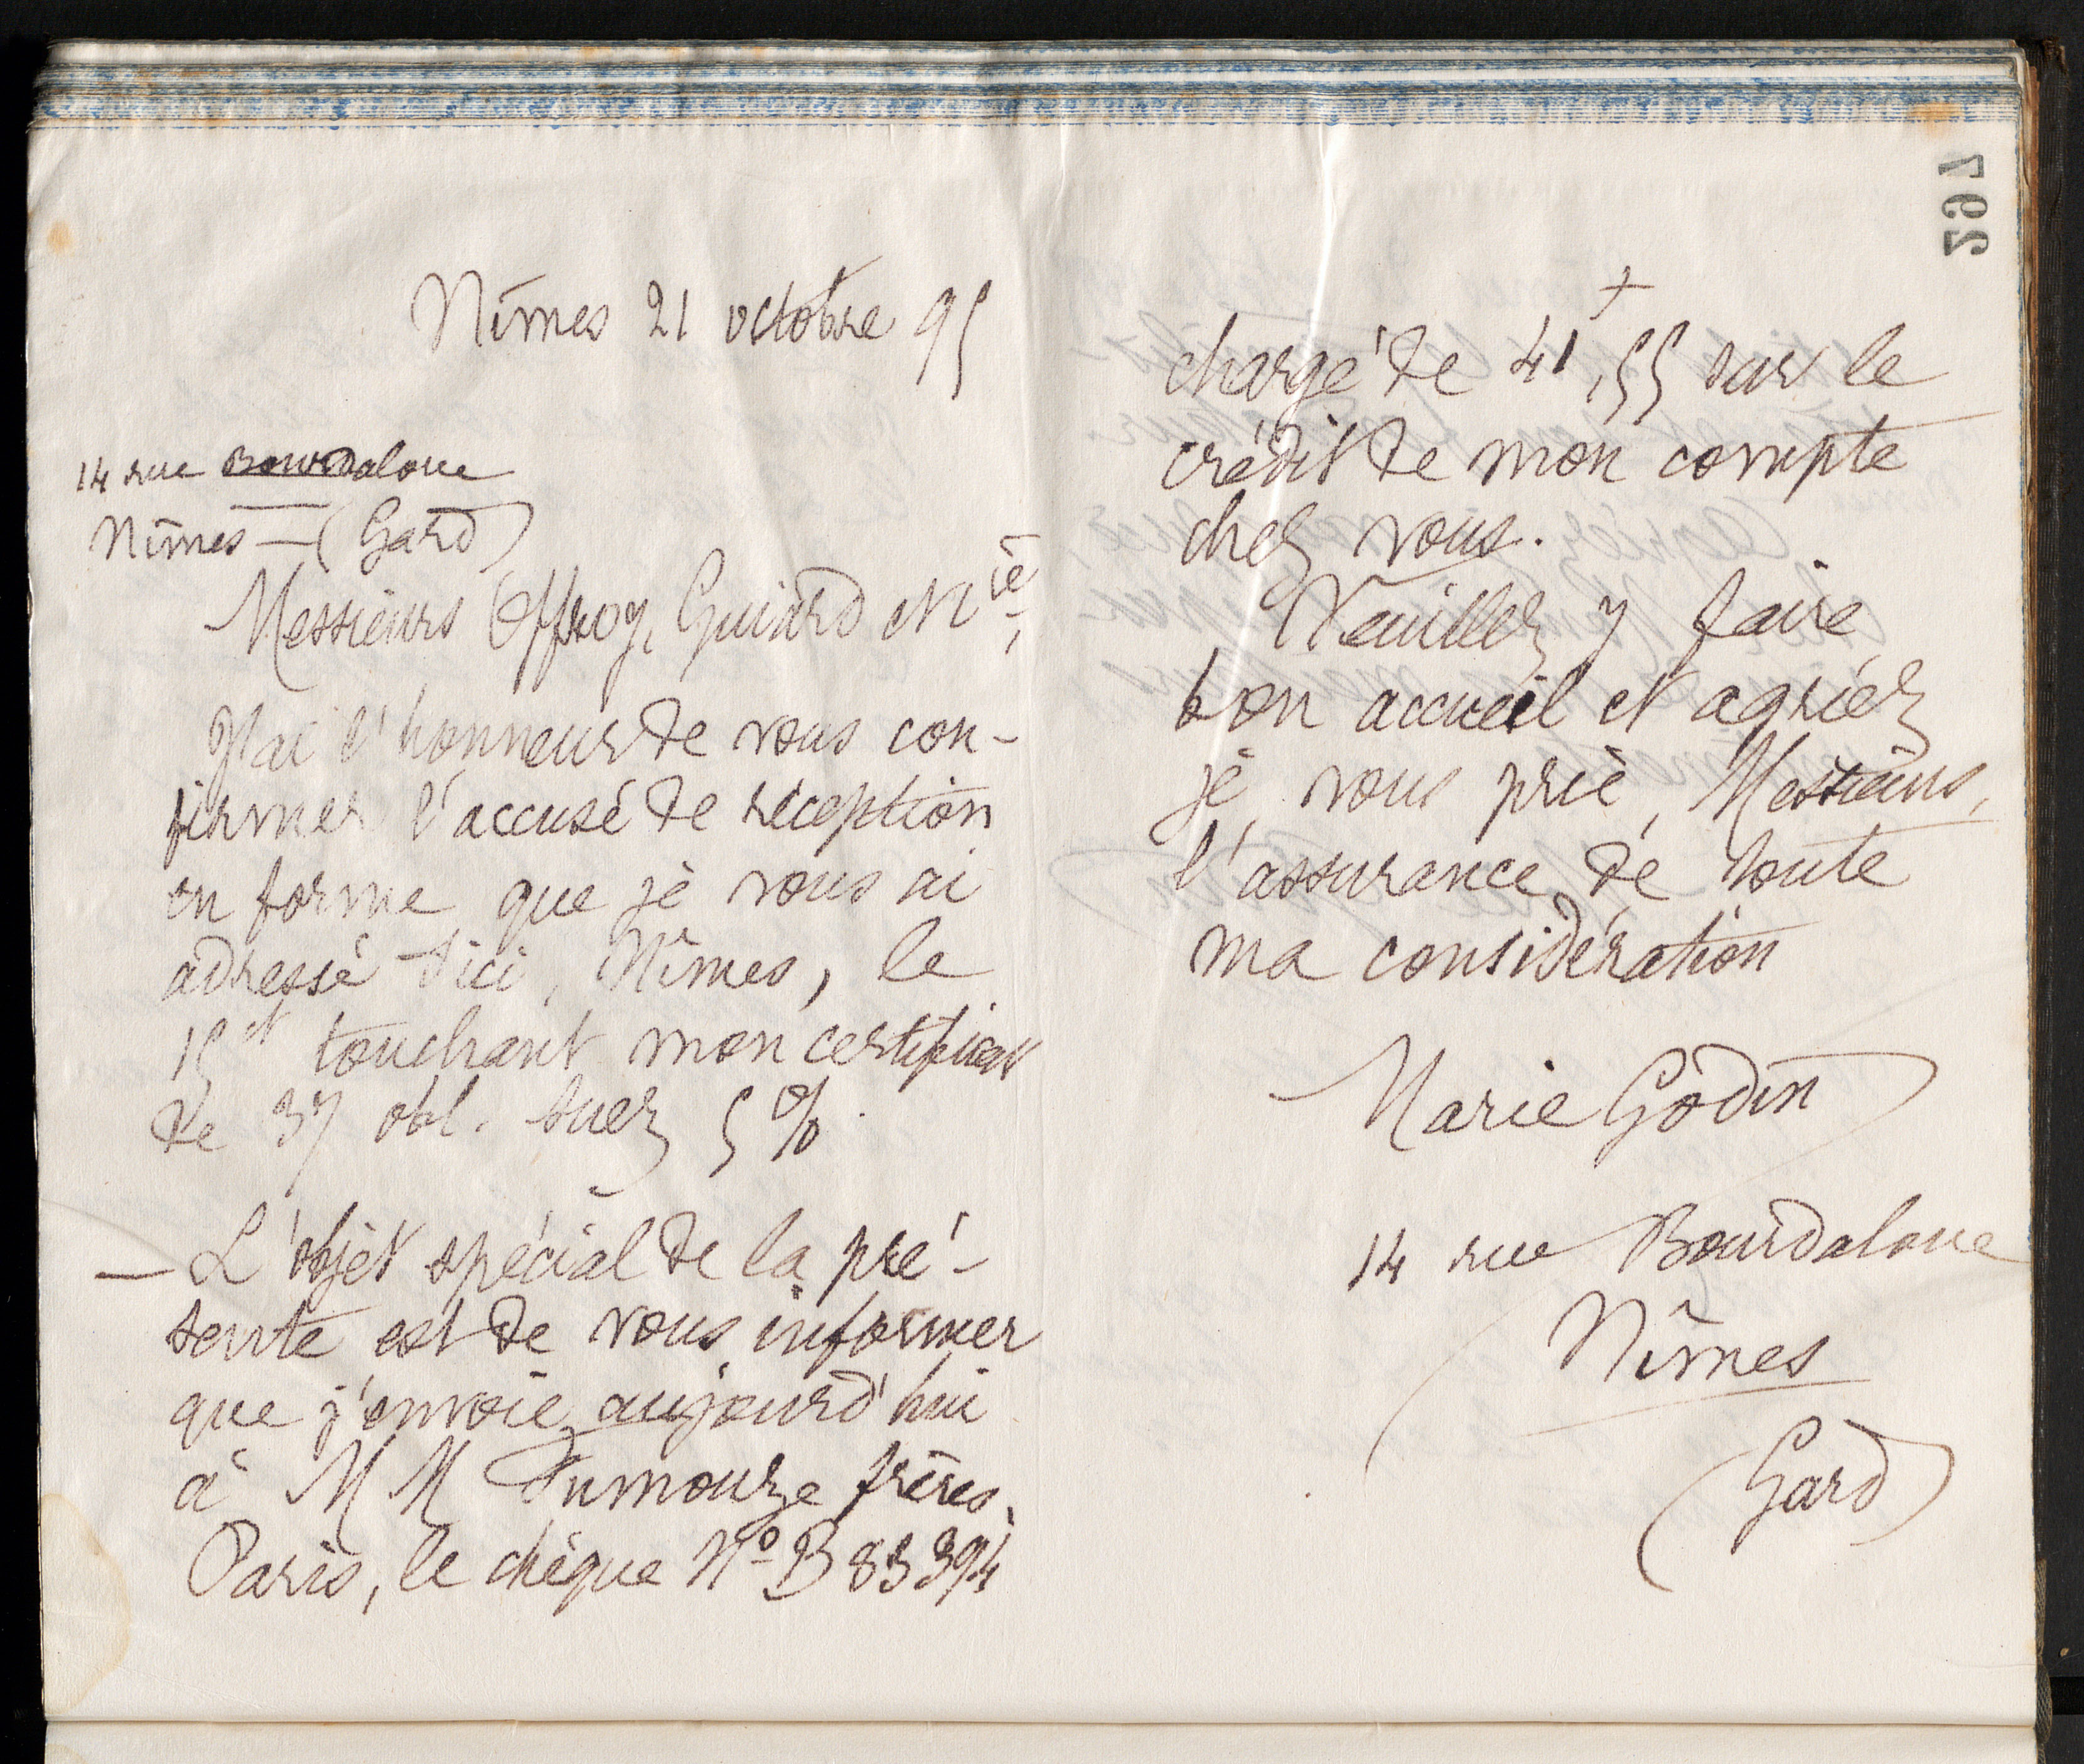 297
Nîmes 21 octobre 95
14 rue Bourdaloue
Nîmes — (Gard)
Messieurs Offroy, Guiard et Cie,
J'ai l'honneur de vous con-
firmer l'accusé de réception
en forme que je vous ai
adressé d'ici, Nîmes, le
15 ct touchant mon certificat
de 37 obl. Suez 5 %.
— L'objet spécial de la pré-
sente est de vous informer
que j'envoie aujourd'hui
à MM Dumouze frères,
Paris, le chèque No B 83394
chargé de 41f,55 sur le
crédit de mon compte
chez vous.
Veuillez y faire
bon accueil et agréez
je vous prie, Messieurs,
l'assurance de toute
ma considération
Marie Godin
14 rue Bourdaloue
Nîmes
(Gard)